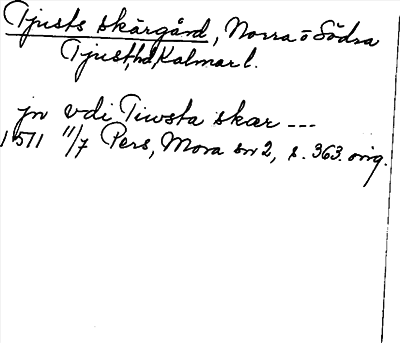 Tjusts skärgård, Norra o Södra
Tjust, hd, Kalmar l.
jn vdi Tiwsta skær ---
1511 11/7 Pers, Mora sn 2, s. 363. orig.